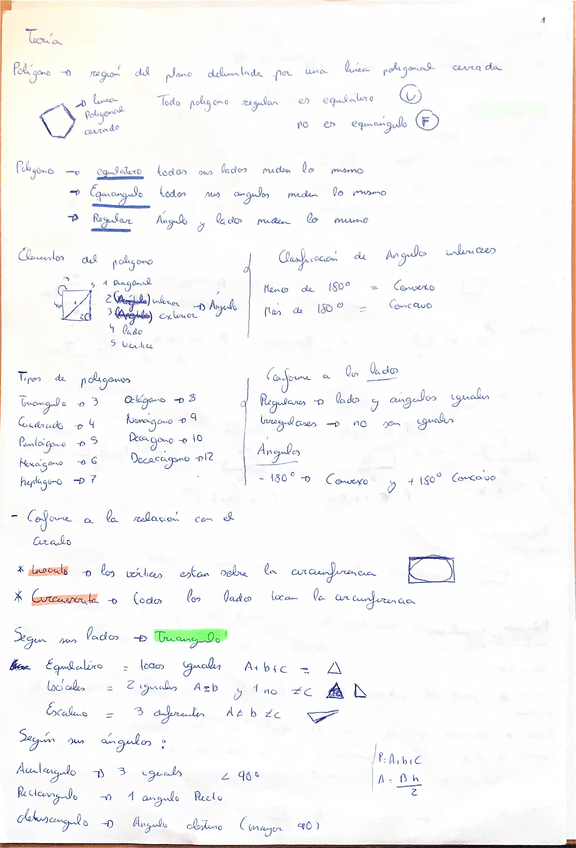 1
Teoría
Polígono → región del plano delimitada por una línea poligonal cerrada
→ línea
Poligonal
cerrado
Todo polígono regular es equilátero (V)
no es equiángulo (F)
Polígono → equilátero todos sus lados miden lo mismo
→ Equiangulo todos sus angulos miden lo mismo
→ Regular Ángulo y lados miden lo mismo
Elementos del polígono
1 diagonal
2 (Angulo) interior → Ángulo
3 (Angulo) exterior
4 lado
5 vértice
Clasificación de Ángulos interiores
Menos de 180º = Convexo
Más de 180º = Concavo
Tipos de polígonos
Triangulo → 3 Octógono → 8
Cuadrado → 4 Nonágono → 9
Pentágono → 5 Decagono → 10
Hexágono → 6 Dodecágono → 12
Heptagono → 7
Conforme a los lados
Regulares → lado y ángulos iguales
Irregulares → no son iguales
Ángulos
- 180º → Convexo y + 180º Concávo
- Conforme a la relación con el
circulo
* Inscrito → los vértices estan sobre la circunferencia
* Circunscrita → todos los lados tocan la circunferencia
Segun sus lados → Triangulo
Equilatero = lados iguales A+b+c =
Isósceles = 2 iguales A=b y 1 no ≠c
Escaleno = 3 diferentes A≠b≠c
Según sus ángulos:
Acutangulo → 3 iguals < 90º
Rectangulo → 1 angulo Recto
obtusangulo → Angulo obtuso (mayor 90)
P: A+b+c
A = B·h
2